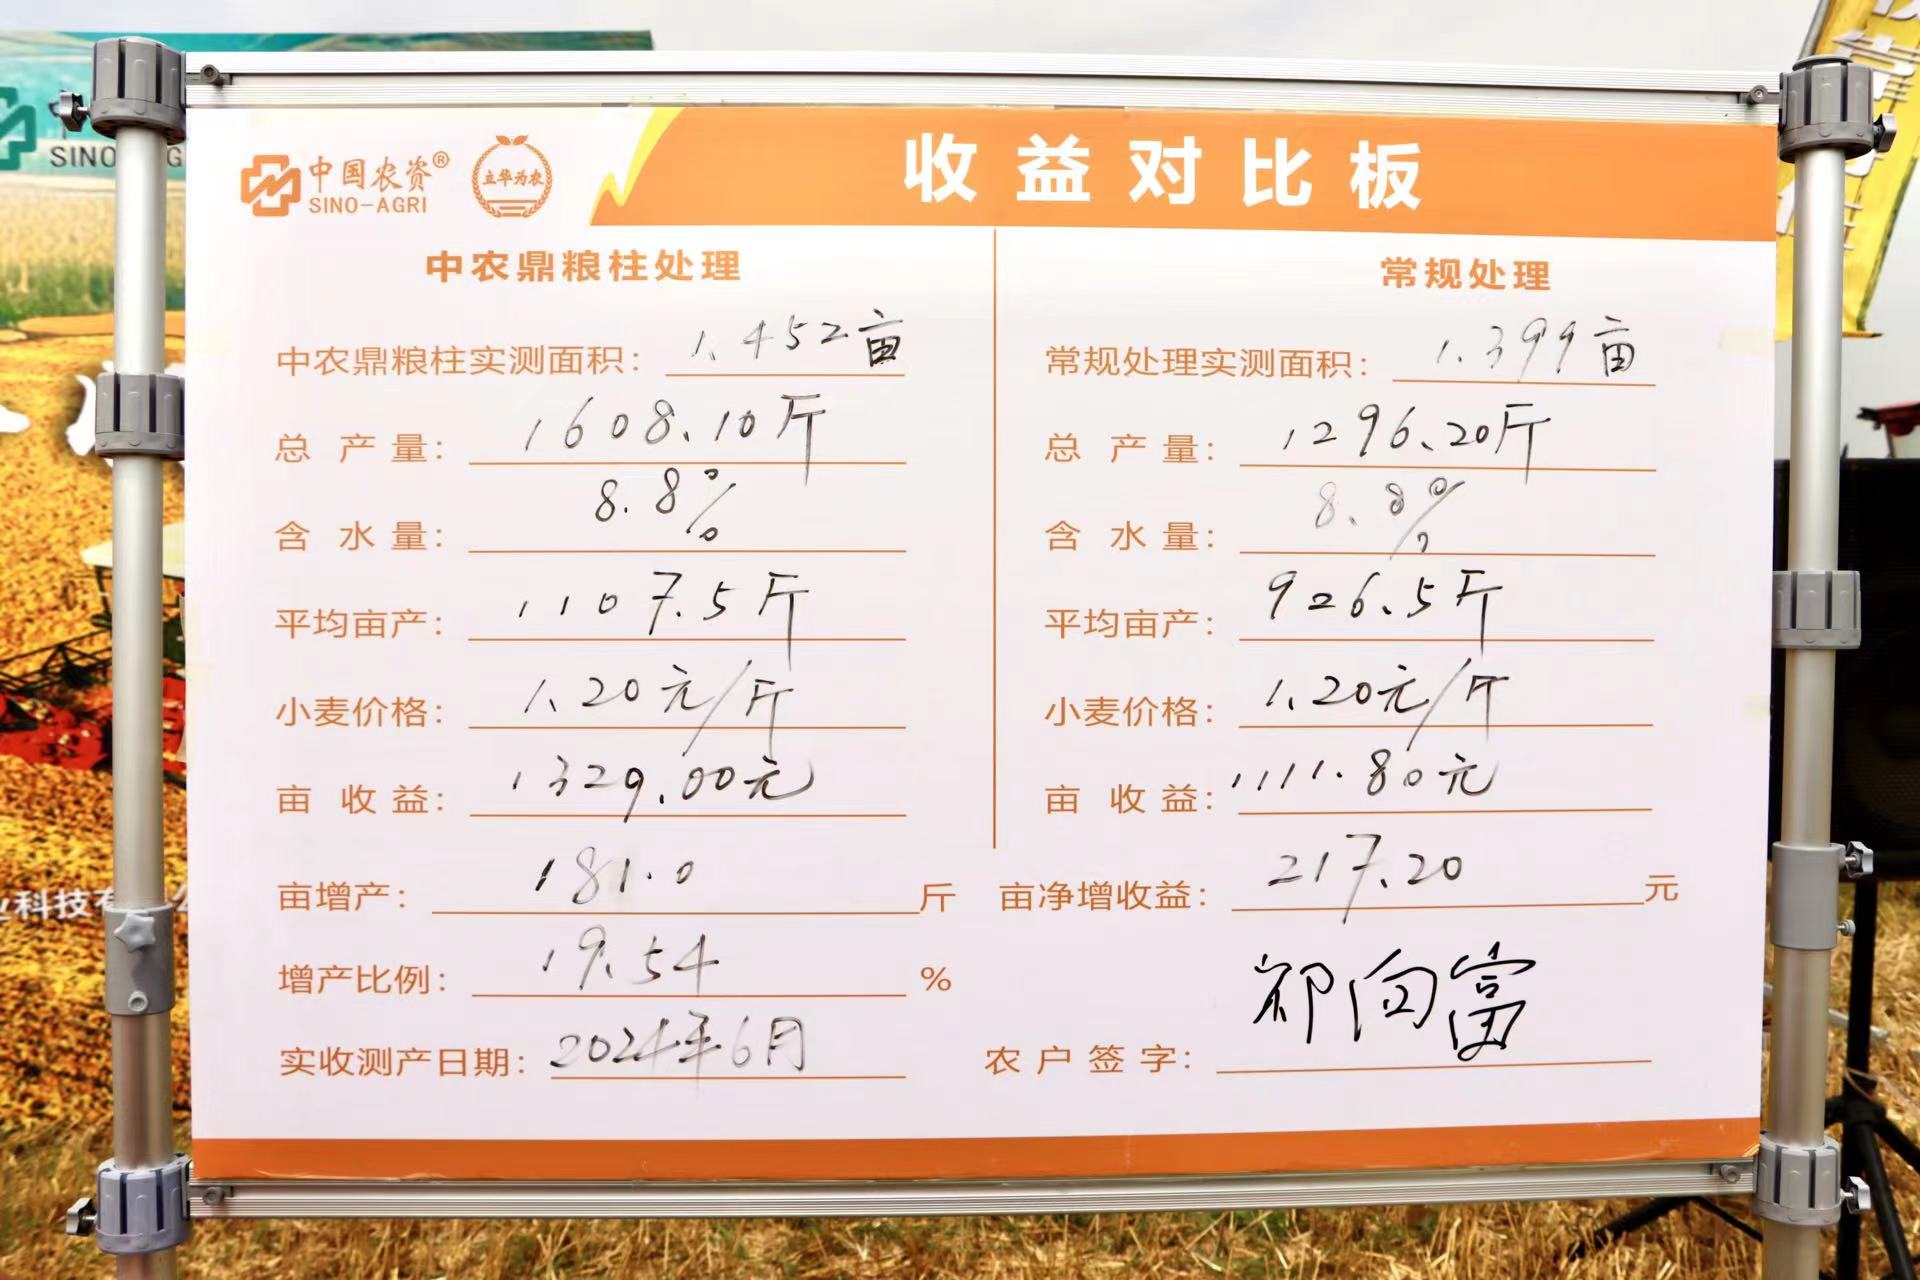 SINO
中国农资®
SINO-AGRI
立华为农
收益对比板
中农鼎粮柱处理
中农鼎粮柱实测面积：1.452亩
总产量：1608.10斤
含水量：8.8%
平均亩产：1107.5斤
小麦价格：1.20元/斤
亩收益：1329.00元
常规处理
常规处理实测面积：1.399亩
总产量：1296.20斤
含水量：8.8%
平均亩产：926.5斤
小麦价格：1.20元/斤
亩收益：1111.80元
亩增产：181.0斤
亩净增收益：217.20元
增产比例：19.54%
实收测产日期：2024年6月
农户签字：祁向富
业科技有